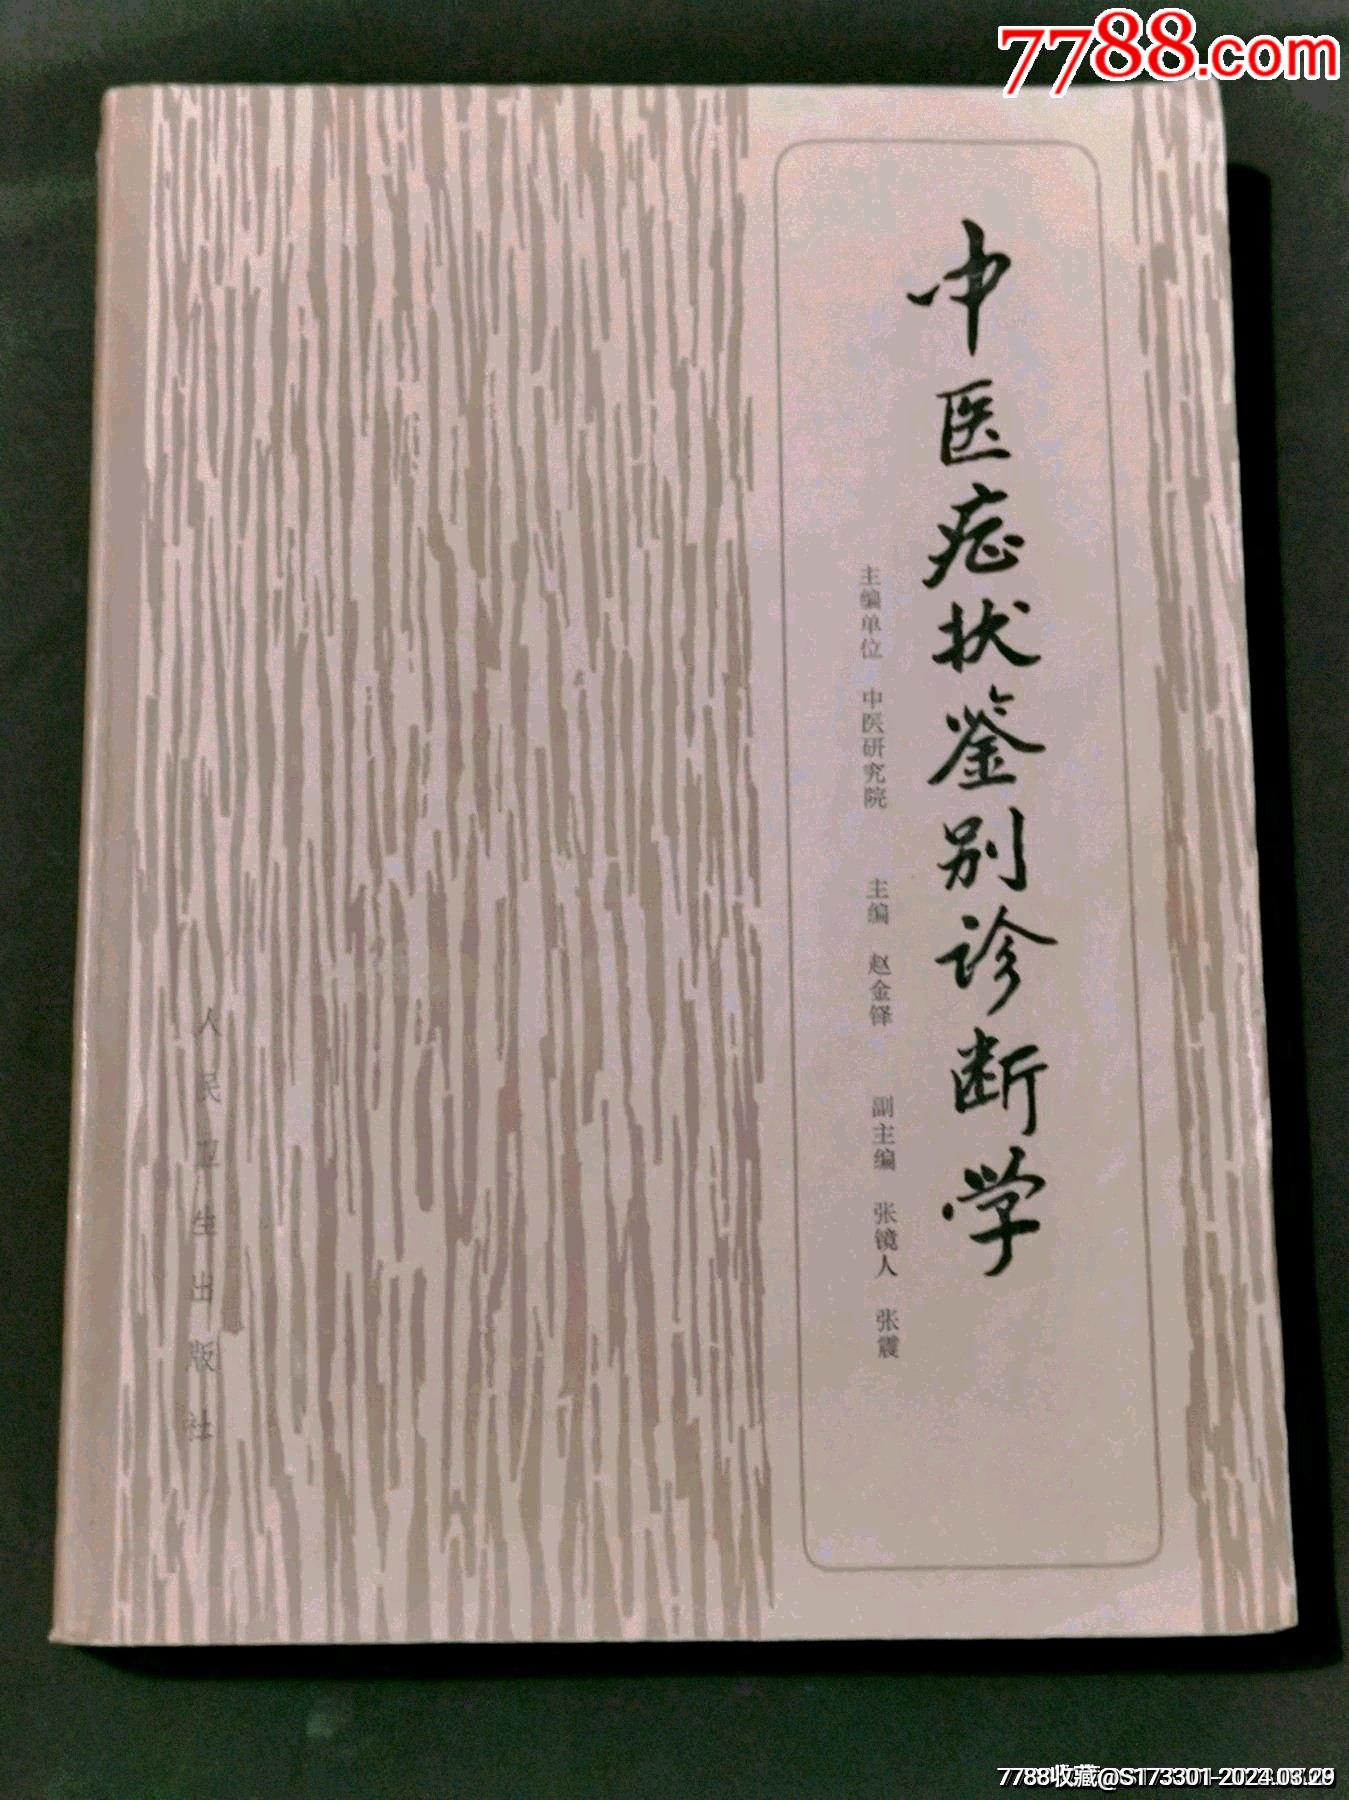 7788.com
中医症状鉴别诊断学
主编单位 中医研究院 主编 赵金铎 副主编 张镜人 张震
人民卫生出版社
7788收藏@S173301-2024.03.29